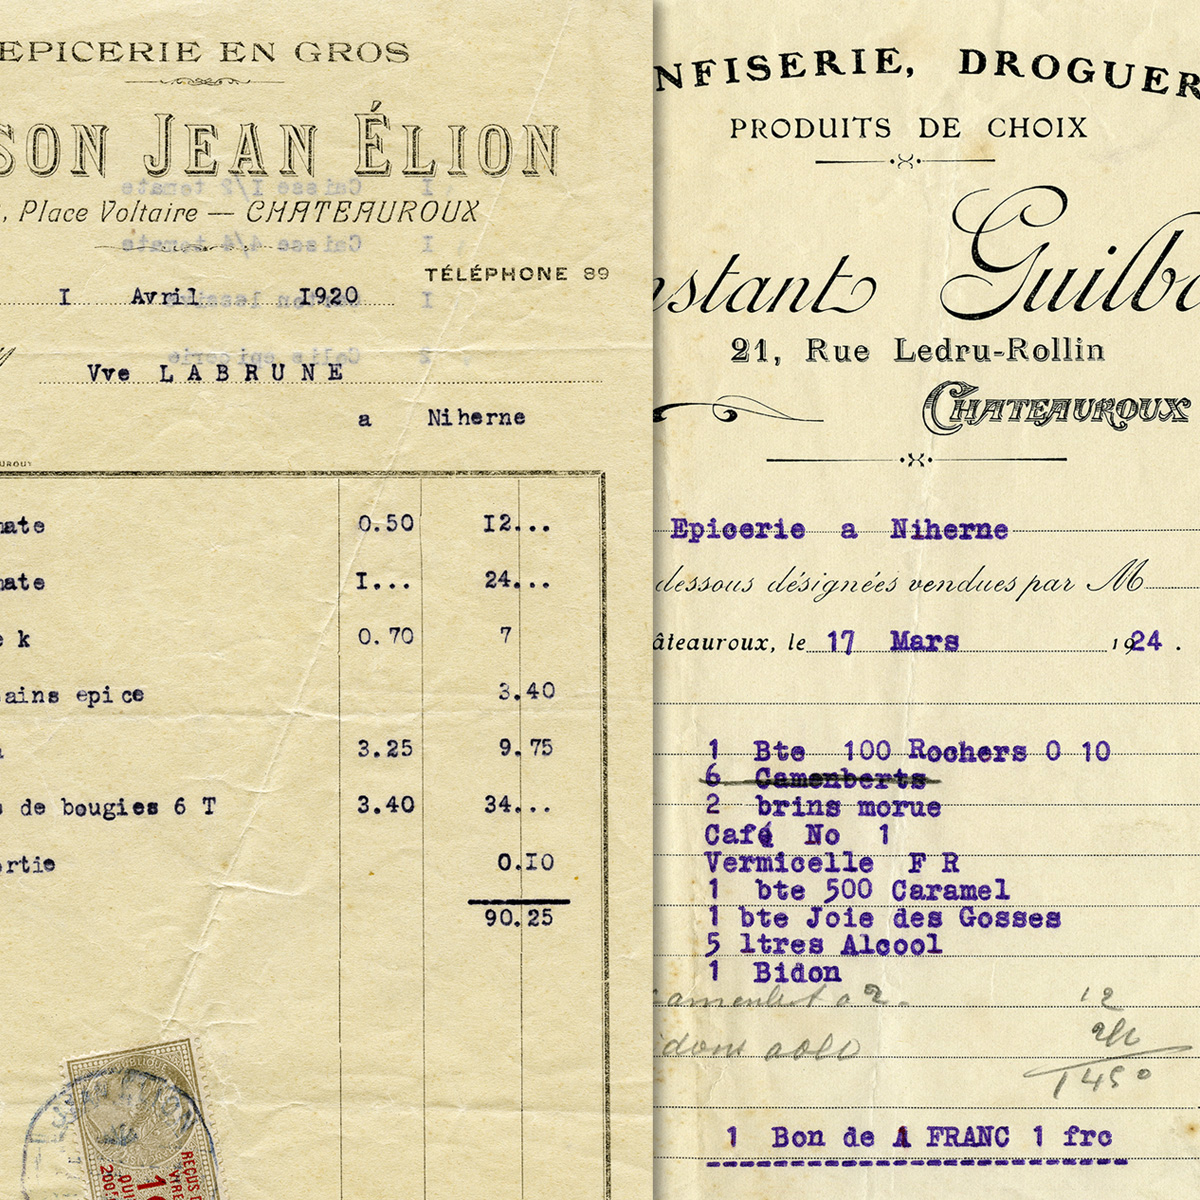 EPICERIE EN GROS
SON JEAN ÉLION
, Place Voltaire — CHATEAUROUX
TÉLÉPHONE 89
I Avril 1920
Vve LABRUNE
a Niherne
mate 0.50 12...
mate I... 24...
e k 0.70 7
ains epice 3.40
3.25 9.75
s de bougies 6 T 3.40 34...
ortie 0.10
90.25
NFISERIE, DROGUER
PRODUITS DE CHOIX
nstant Guilb
21, Rue Ledru-Rollin
CHATEAUROUX
Epicerie a Niherne
dessous désignées vendues par M
âteauroux, le 17 Mars 1924.
1 Bte 100 Rochers 0 10
6 Camenberts
2 brins morue
Café No 1
Vermicelle F R
1 bte 500 Caramel
1 bte Joie des Gosses
5 ltres Alcool
1 Bidon
12
1450
1 Bon de A FRANC 1 frc